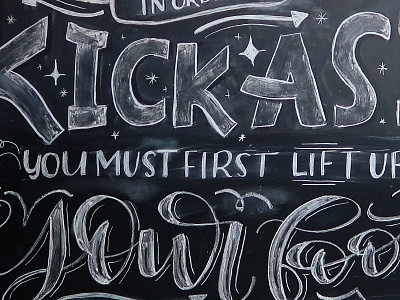 IN ORDE
KICK AS
YOU MUST FIRST LIFT UP
your foo